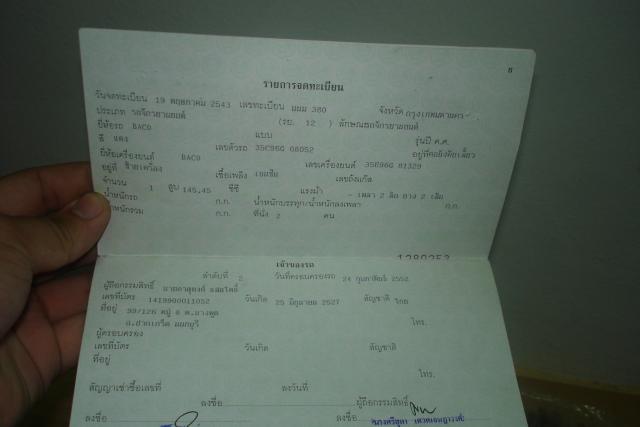 8
รายการจดทะเบียน
วันจดทะเบียน 19 พฤษภาคม 2543 เลขทะเบียน 380 จังหวัด
ประเภท รถจักรยานยนต์ (รย. 12 ) ลักษณะรถจักรยานยนต์
ยี่ห้อรถ BACO แบบ รุ่นปี ค.ศ.
สี แดง เลขตัวรถ 35C960 08052 อยู่ที่
ยี่ห้อเครื่องยนต์ BACO เลขเครื่องยนต์ 35E960 81329
อยู่ที่ เชื้อเพลิง เบนซิน เลขถังแก๊ส
จำนวน 1 สูบ 145.45 ซีซี แรงม้า - เพลา 2 ล้อ ยาง 2 เส้น
น้ำหนักรถ ก.ก. น้ำหนักบรรทุก/น้ำหนักลงเพลา ก.ก.
น้ำหนักรวม ก.ก. ที่นั่ง 2 คน
เจ้าของรถ
ลำดับที่ 2 วันที่ครอบครองรถ 24 กุมภาพันธ์ 2552
ผู้ถือกรรมสิทธิ์
เลขที่บัตร 1419900011052 วันเกิด 25 มิถุนายน 2527 สัญชาติ ไทย
ที่อยู่ 99/126 หมู่ 6 ต.บางพูด
อ.ปากเกร็ด นนทบุรี โทร.
ผู้ครอบครอง
เลขที่บัตร วันเกิด สัญชาติ
ที่อยู่ โทร.
สัญญาเช่าซื้อเลขที่ ลงวันที่
ลงชื่อ ผู้ถือกรรมสิทธิ์
ลงชื่อ ลงชื่อ